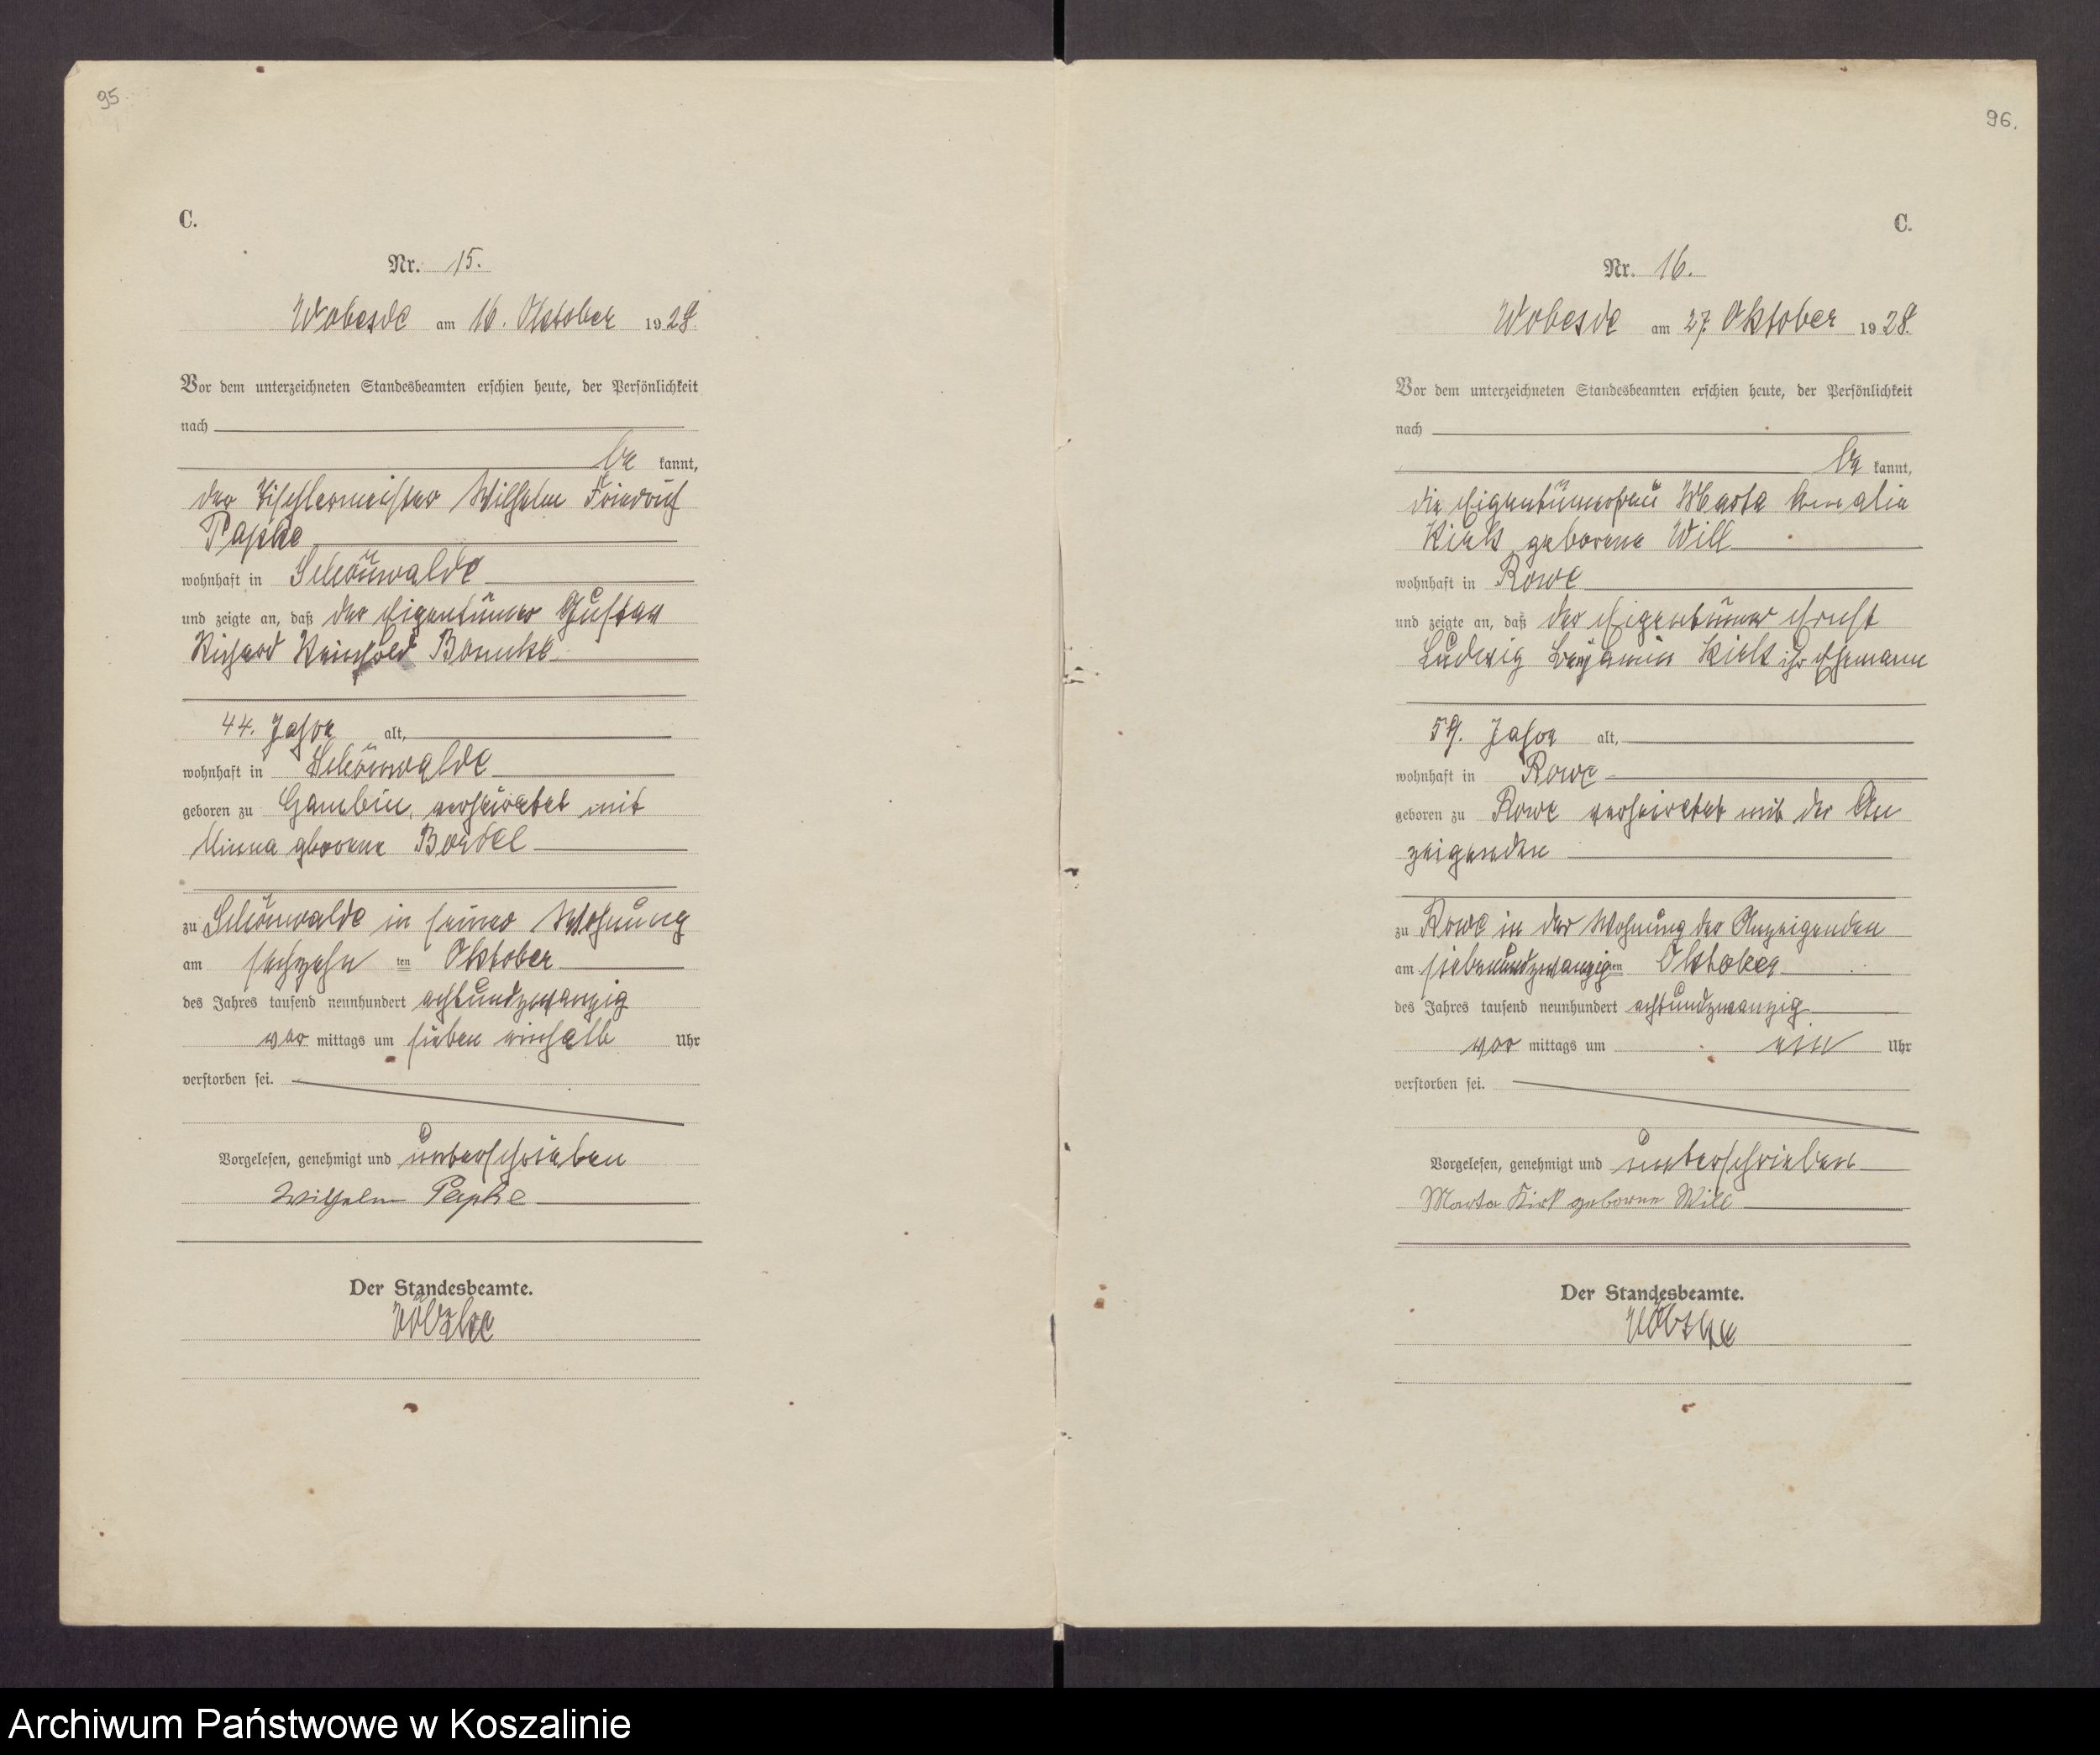 95
C.
Nr. 15.
Wobesde am 16. Oktober 1928.
Vor dem unterzeichneten Standesbeamten erschien heute, der Persönlichkeit
nach
be kannt,
der Tischlermeister Wilhelm Friedrich
Papke
wohnhaft in Schönwalde
und zeigte an, daß der Eigentümer Gustav
Richard Reinhold
44. Jahre alt,
wohnhaft in Schönwalde
geboren zu Gambin, verheiratet mit
Minna geborene
zu Schönwalde in seiner Wohnung
am sechzehn ten Oktober
des Jahres tausend neunhundert achtundzwanzig
vor mittags um sieben einhalb Uhr
verstorben sei.
Vorgelesen, genehmigt und unterschrieben
Wilhelm Papke
Der Standesbeamte.
Völzke
96.
C.
Nr. 16.
Wobesde am 27. Oktober 1928.
Vor dem unterzeichneten Standesbeamten erschien heute, der Persönlichkeit
nach
be kannt,
die Eigentümerfrau Marta Amalie
Kirk geborene Will
wohnhaft in Rowe
und zeigte an, daß der Eigentümer Ernst
Ludwig Benjamin Kirk ihr Ehemann
59. Jahre alt,
wohnhaft in Rowe
geboren zu Rowe verheiratet mit der An
zeigenden
zu Rowe in der Wohnung der Anzeigenden
am siebenundzwanzigten Oktober
des Jahres tausend neunhundert achtundzwanzig
vor mittags um ein Uhr
verstorben sei.
Vorgelesen, genehmigt und unterschrieben
Marta Kirk geborene Will
Der Standesbeamte.
Völzke
Archiwum Państwowe w Koszalinie